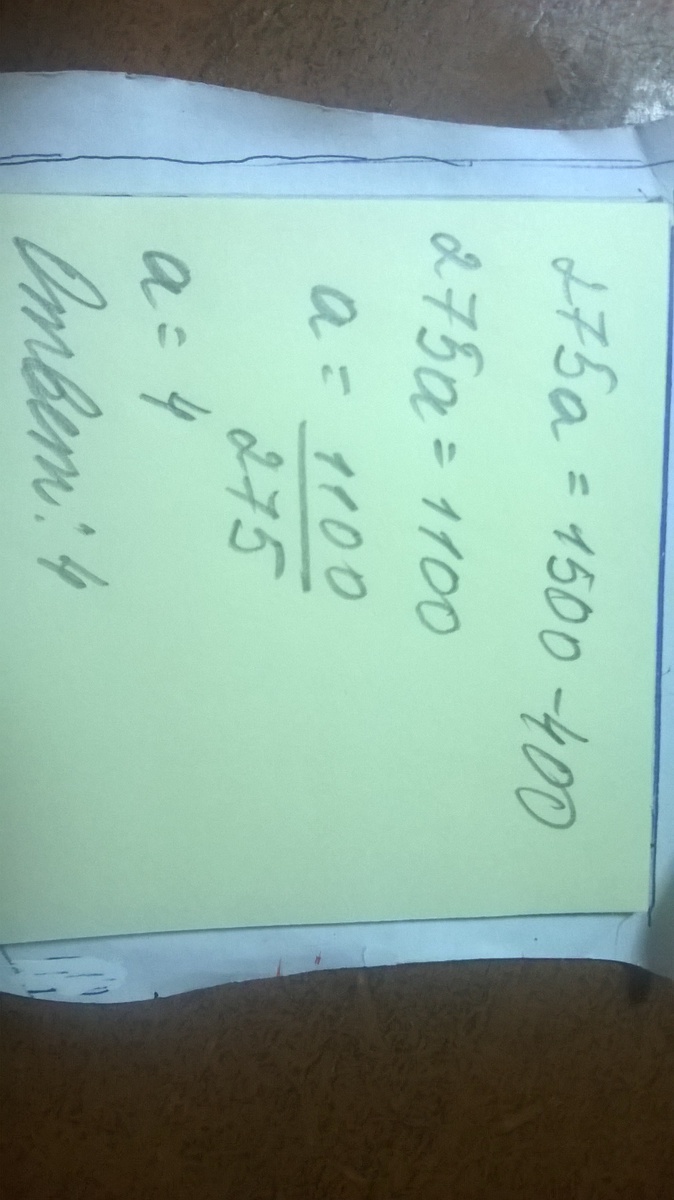 275a = 1500 - 400
275a = 1100
a = 1100
275
a = 4
Ответ: 4